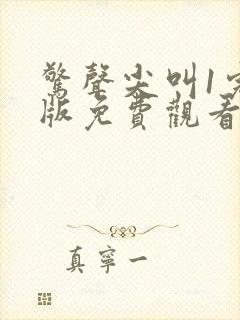 驚聲尖叫1完
版免費觀看
真寧一